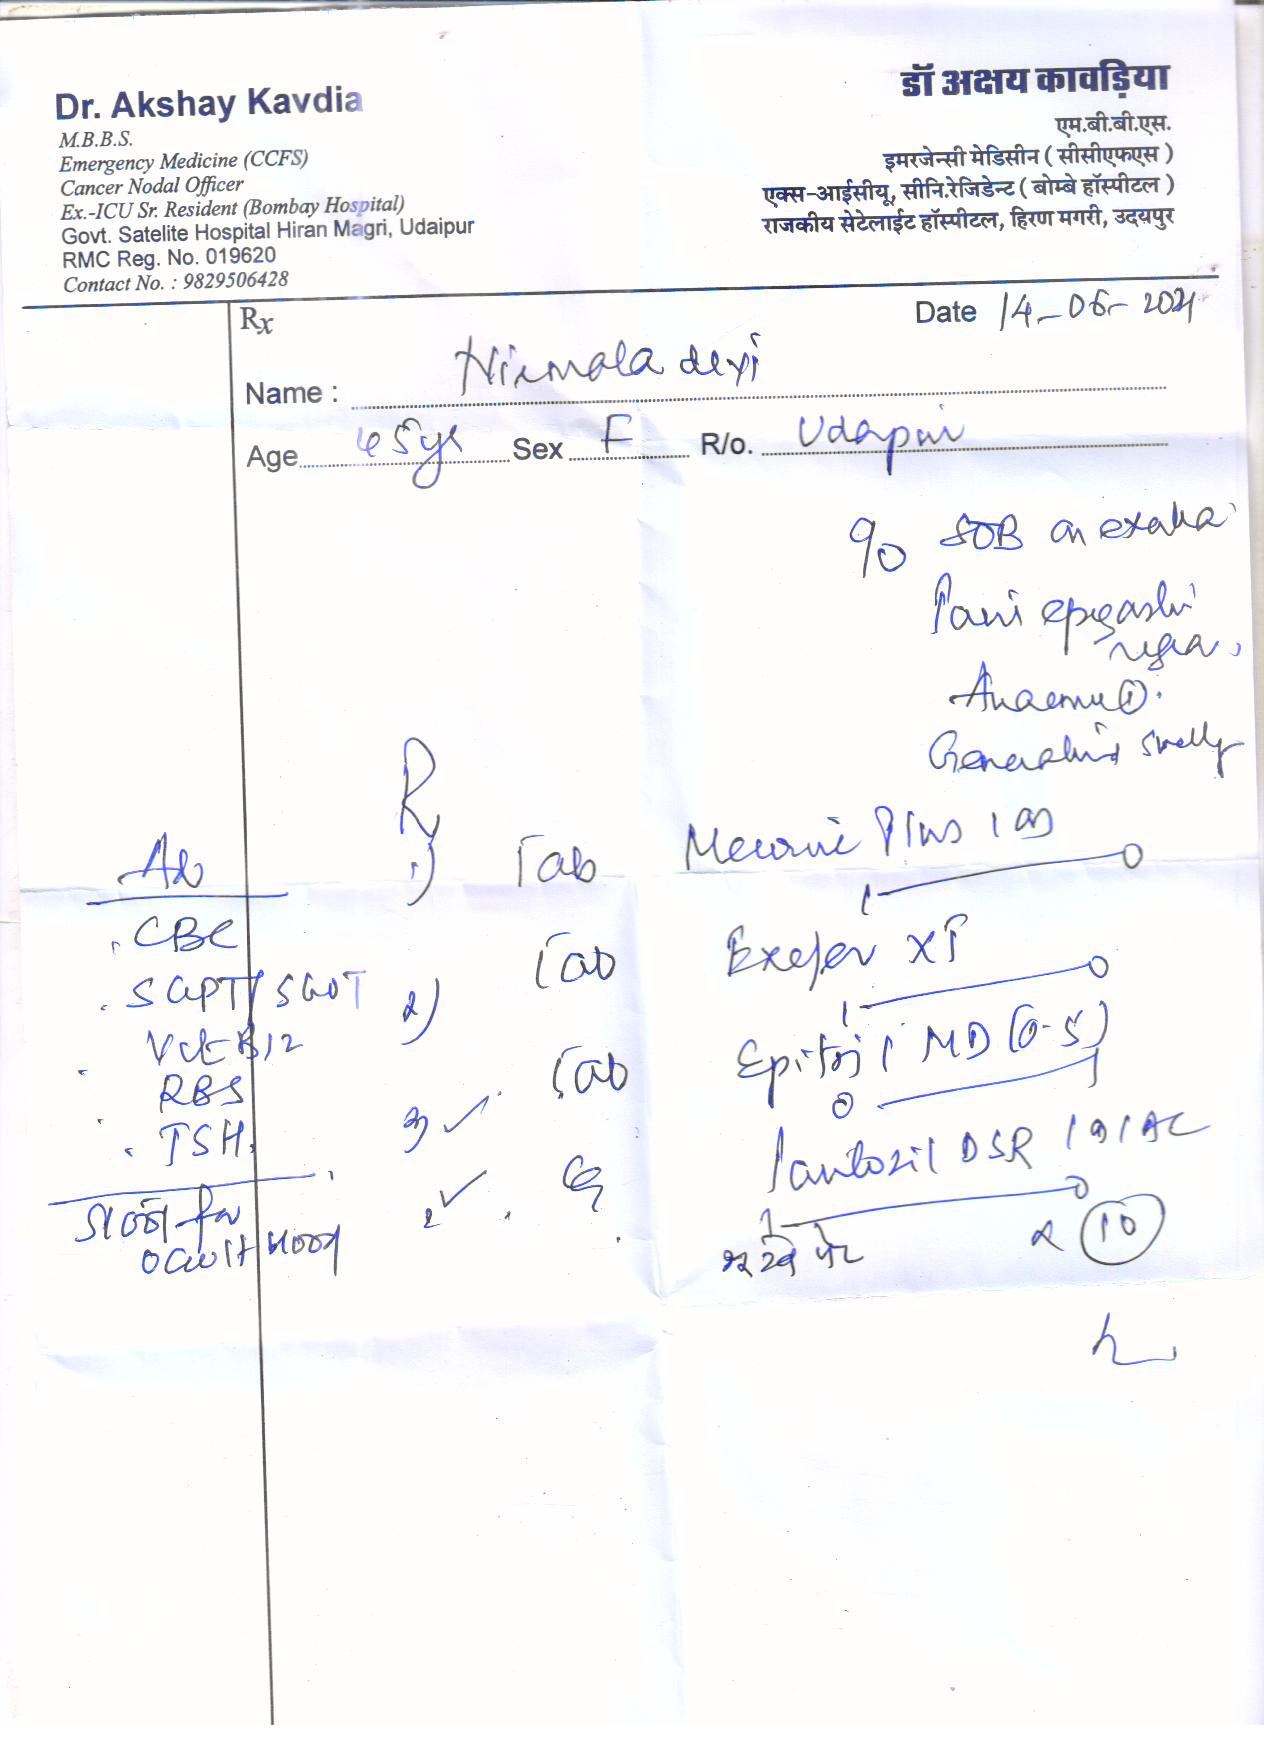 Dr. Akshay Kavdia
M.B.B.S.
Emergency Medicine (CCFS)
Cancer Nodal Officer
Ex.-ICU Sr. Resident (Bombay Hospital)
Govt. Satelite Hospital Hiran Magri, Udaipur
RMC Reg. No. 019620
Contact No. : 9829506428
डॉ अक्षय कावड़िया
एम.बी.बी.एस.
इमरजेन्सी मेडिसीन ( सीसीएफएस )
एक्स-आईसीयू, सीनि.रेजिडेन्ट ( बोम्बे हॉस्पीटल )
राजकीय सेटेलाईट हॉस्पीटल, हिरण मगरी, उदयपुर
Rx
Date 14-06-2021
Name : Nirmala devi
Age 45yr Sex F R/o. Udaipur
c/o SOB on
Pain
Generalised
R
1) Tab Plus 1 OD
1 0
2) Tab XT
1 0
3 Tab MD (0.5)
0 1
DSR
1 0
x 10
CBC
SGPT/SGOT
Vit B12
RBS
TSH
Stool for
occult blood